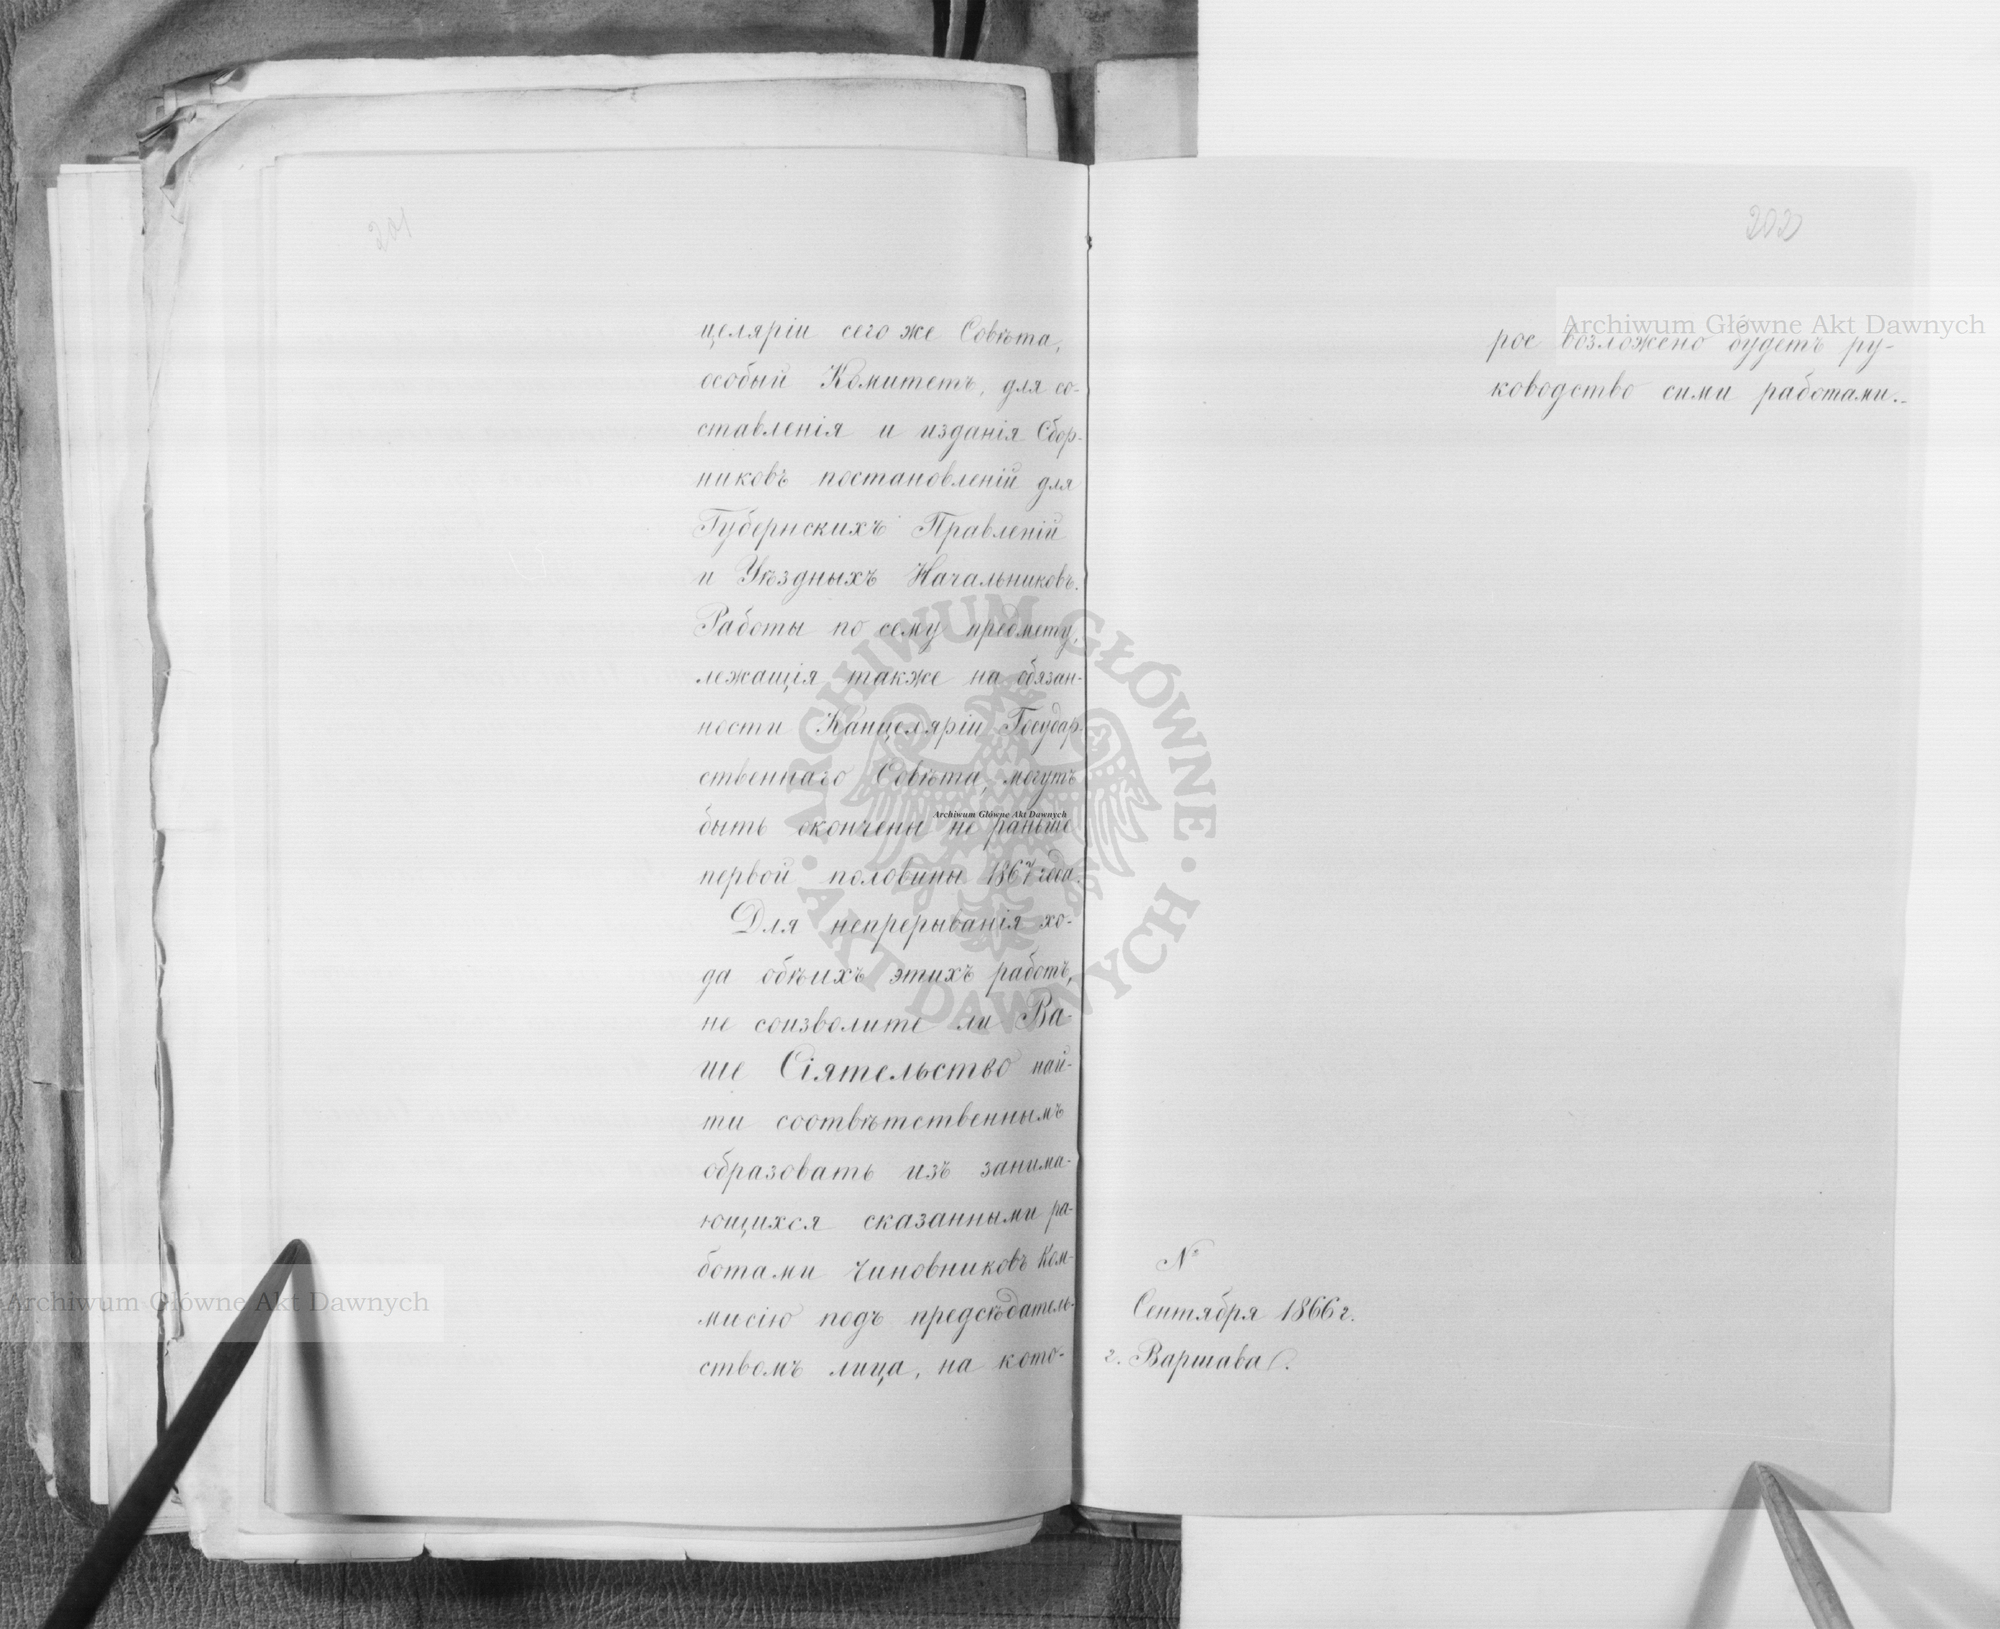 201
целяріи сего же Совѣта,
особый Комитетъ, для со-
ставленія и изданія Сбор-
никовъ постановленій для
Губернскихъ Правленій
и Уѣздныхъ Начальниковъ.
Работы по сему предмету,
лежащія также на обязан-
ности Канцеляріи Государ-
ственнаго Совѣта, могутъ
быть окончены не раньше
первой половины 1867 года.
Для непрерыванія хо-
да обѣихъ этихъ работъ,
не соизволите ли Ва-
ше Сіятельство най-
ти соотвѣтственнымъ
образовать изъ занима-
ющихся сказанными ра-
ботами чиновниковъ Ком-
мисію подъ предсѣдатель-
ствомъ лица, на кото-
202
рое возложено будетъ ру-
ководство сими работами.
№
Сентября 1866 г.
г. Варшава.
Archiwum Główne Akt Dawnych
Archiwum Główne Akt Dawnych
Archiwum Główne Akt Dawnych
ARCHIWUM GŁÓWNE
AKT DAWNYCH